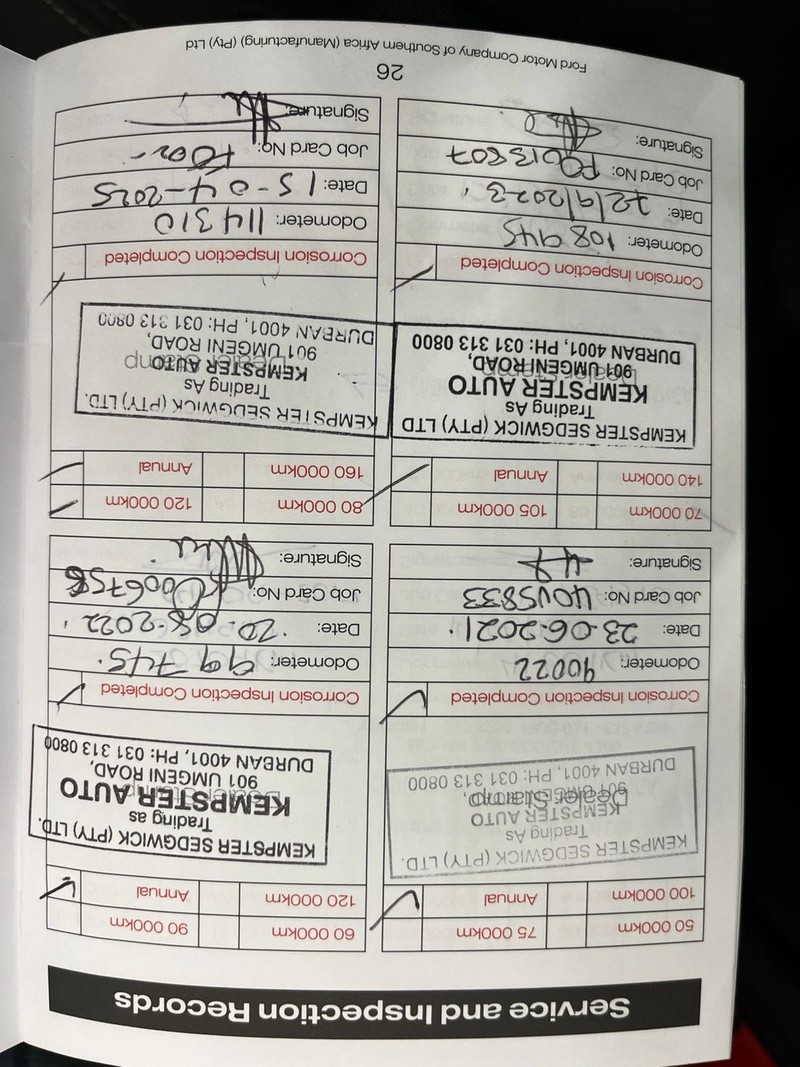 Service and Inspection Records
50 000km 75 000km
100 000km Annual
KEMPSTER SEDGWICK (PTY) LTD.
Trading As
KEMPSTER AUTO
Dealer Stamp
901 UMGENI ROAD,
DURBAN 4001, PH: 031 313 0800
Corrosion Inspection Completed
Odometer: 90022
Date: 23.06.2021.
Job Card No:
Signature:
60 000km 90 000km
120 000km Annual
KEMPSTER SEDGWICK (PTY) LTD.
Trading as
KEMPSTER AUTO
Dealer Stamp
901 UMGENI ROAD,
DURBAN 4001, PH: 031 313 0800
Corrosion Inspection Completed
Odometer: 99745.
Date: 20.08.2022.
Job Card No:
Signature:
70 000km 105 000km
140 000km Annual
KEMPSTER SEDGWICK (PTY) LTD
Trading As
KEMPSTER AUTO
Dealer Stamp
901 UMGENI ROAD,
DURBAN 4001, PH: 031 313 0800
Corrosion Inspection Completed
Odometer: 108945
Date:
Job Card No:
Signature:
80 000km 120 000km
160 000km Annual
KEMPSTER SEDGWICK (PTY) LTD.
Trading As
KEMPSTER AUTO
Dealer Stamp
901 UMGENI ROAD,
DURBAN 4001, PH: 031 313 0800
Corrosion Inspection Completed
Odometer: 114310
Date: 15-04-2025
Job Card No:
Signature:
26
Ford Motor Company of Southern Africa (Manufacturing) (Pty) Ltd